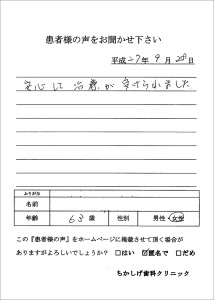 患者様の声をお聞かせ下さい
平成27年9月28日
安心して治療が受けられました
ふりがな
名前
年齢 63歳 性別 男性・女性
この『患者様の声』をホームページに掲載させて頂く場合が
ありますがよろしいでしょうか？ □はい ☑匿名で □だめ
ちかしげ歯科クリニック